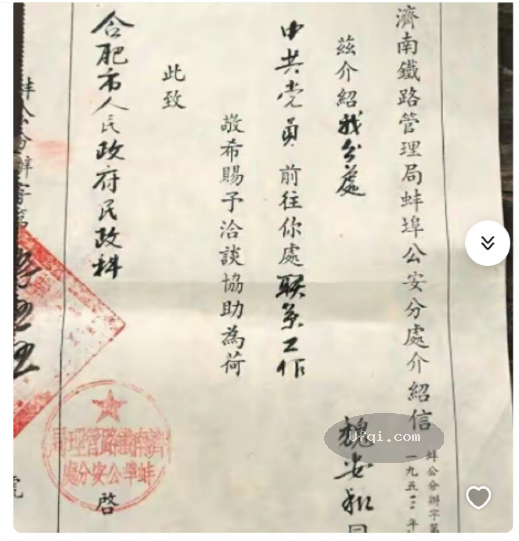 濟南鐵路管理局蚌埠公安分處介紹信
蚌公分辦字第
一九五三年
茲介紹我分處
中共党員前往你處联系工作
敬希賜予洽談協助為荷
此致
合肥市人民政府民政科
啓
濟南鐵路管理局
蚌埠公安分處
蚌公分辦字第
Ufqi.com